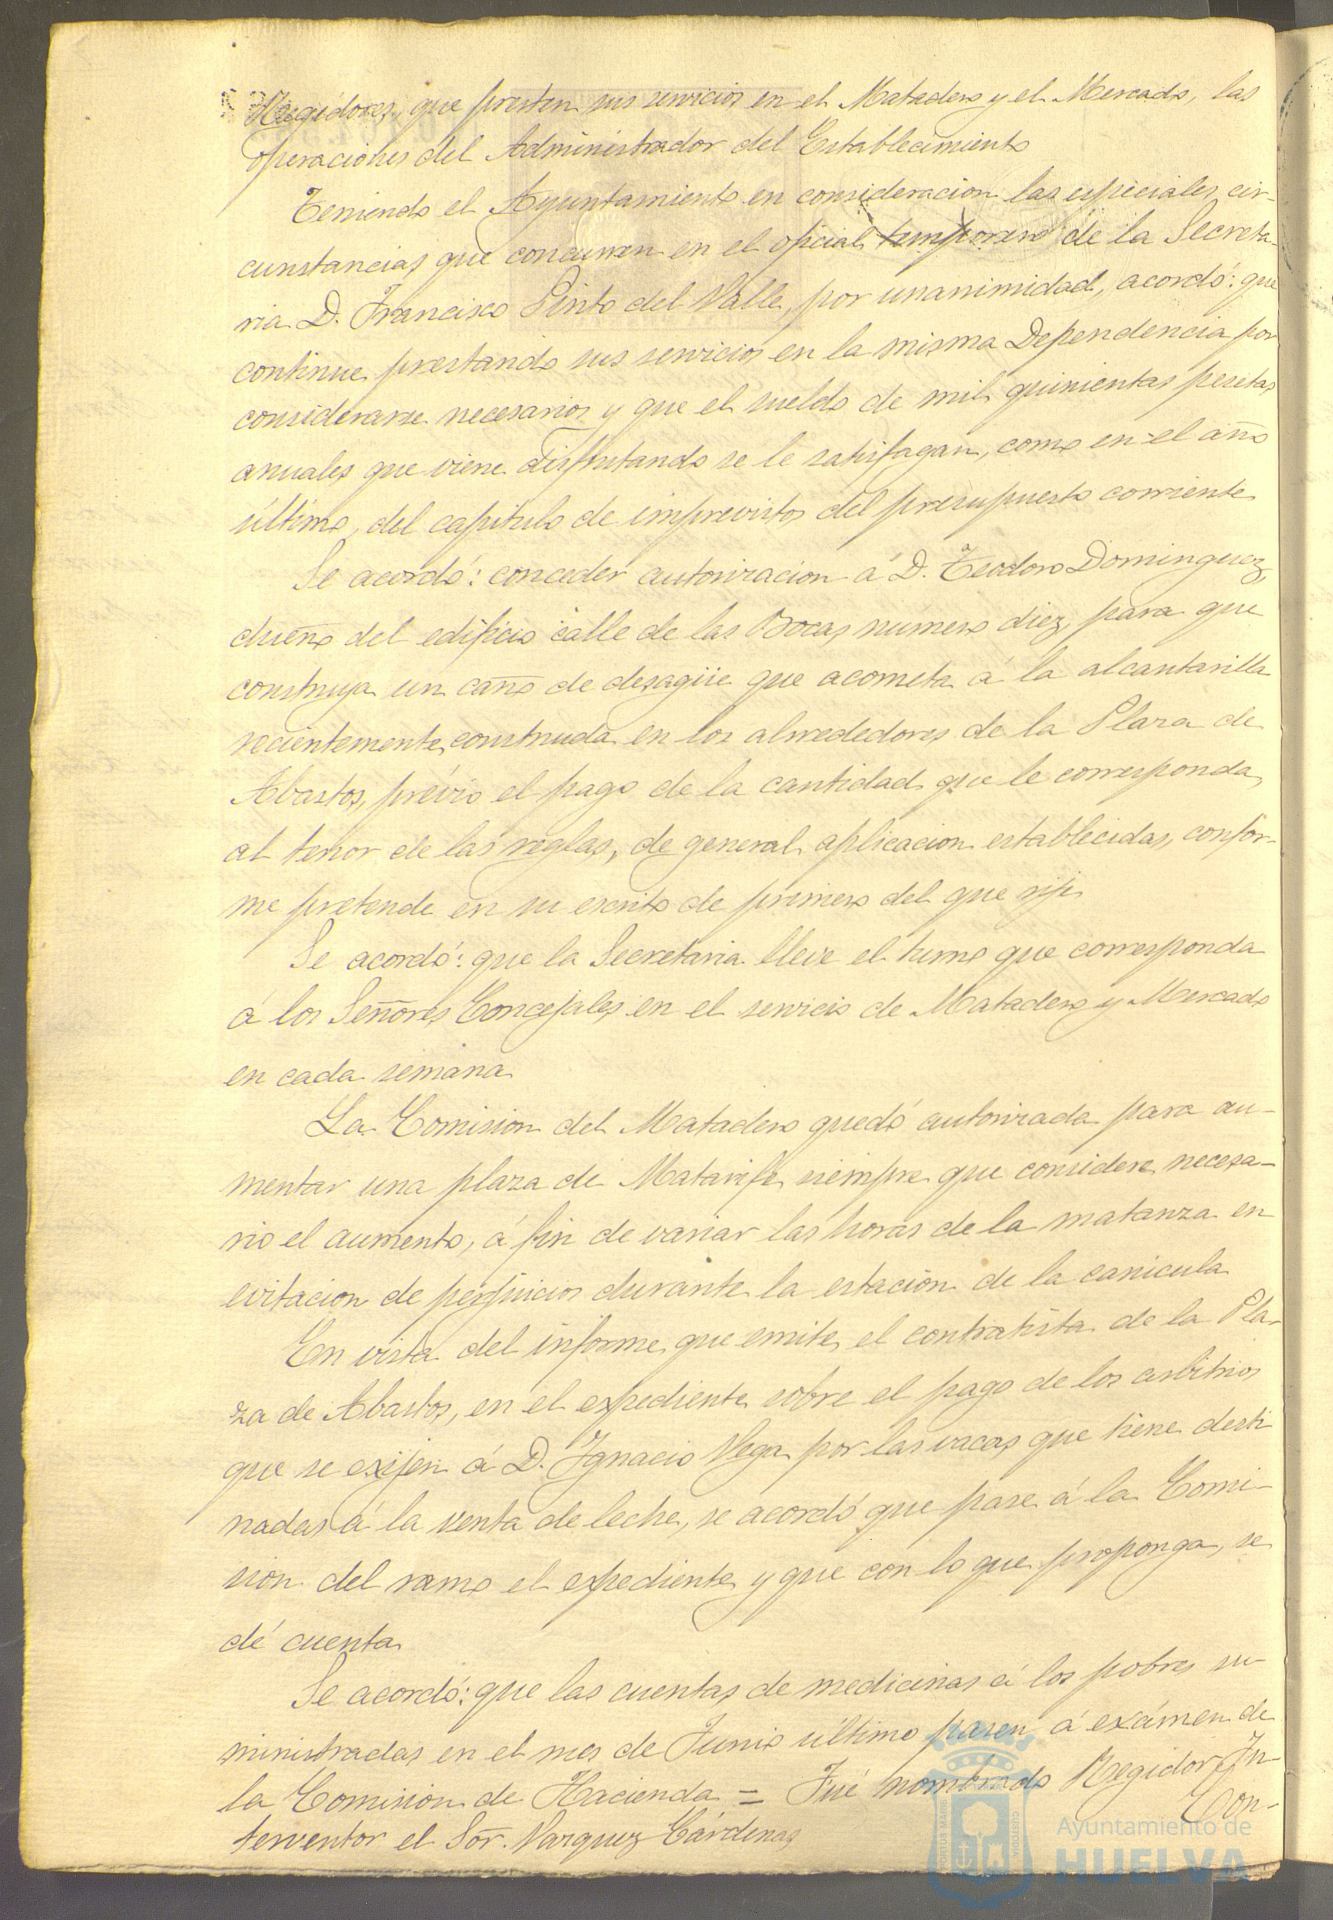 Regidores, que presten sus servicios en el Matadero y el Mercado, las
operaciones del Administrador del Establecimiento
Teniendo el Ayuntamiento en consideracion las especiales cir-
cunstancias que concurren en el oficial temporero de la Secreta-
ria D. Francisco Pinto del Valle, por unanimidad, acordó: que
continue prestando sus servicios en la misma Dependencia por
considerarse necesarios y que el sueldo de mil quinientas pesetas
anuales que viene disfrutando se le satisfagan, como en el año
último, del capítulo de imprevistos del presupuesto corriente
Se acordó: conceder autorizacion á D. Teodoro Dominguez,
dueño del edificio calle de las Bocas numero diez, para que
construya un caño de desagüe que acometa á la alcantarilla
recientemente construida en los alrededores de la Plaza de
Abastos, prévio el pago de la cantidad que le corresponda,
al tenor de las reglas, de general aplicacion establecidas, confor-
me pretende en su escrito de primero del que rije
Se acordó: que la Secretaria lleve el turno que corresponda
á los Señores Concejales en el servicio de Matadero y Mercado
en cada semana
La Comision del Matadero quedó autorizada para au-
mentar una plaza de Matarife siempre que considere necesa-
rio el aumento, á fin de variar las horas de la matanza en
evitacion de perjuicios durante la estación de la canicula
En vista del informe que emite el contratista de la Pla-
za de Abastos, en el expediente sobre el pago de los arbitrios
que se exijen á D. Ignacio Vega por las vacas que tiene desti
nadas á la venta de leche, se acordó que pase á la Comi-
sion del ramo el expediente y que con lo que proponga, se
dé cuenta
Se acordó: que las cuentas de medicinas á los pobres su-
ministradas en el mes de Junio último pasen á exámen de
la Comision de Hacienda = Fué nombrado Regidor In-
terventor el Sor. Vazquez Cárdenas
Con-
Ayuntamiento de
HUELVA